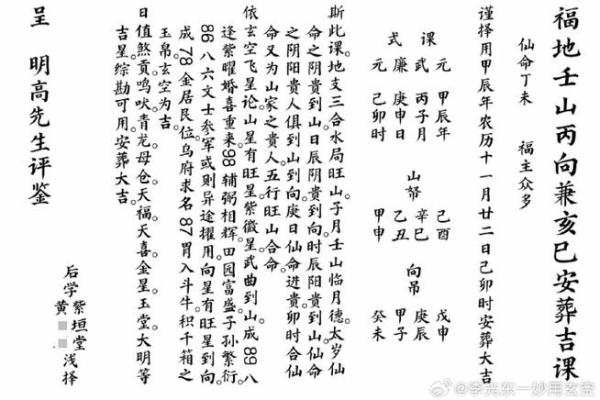 福地壬山丙向兼亥巳安葬吉课
仙命丁未 福主众多
谨择用甲辰年农历十一月廿二日己卯时安葬大吉
课式
元 甲辰年
武 丙子月
廉 庚申日
元 己卯时
山帮
己酉
辛巳
乙丑
甲申
向吊
戊申
庚辰
甲子
癸未
斯此课。地支三合水局旺山子月壬山临月德。太岁仙
命之阴贵到山日辰阴贵到向时辰阳贵到山仙命
之阴阳贵人俱到山到向庚日仙命进贵卯时合仙
命又为山家之贵人五行旺山合命。
依玄空飞星论山星有旺星紫微星武曲到山成。89八
逢紫曜婚喜重来。98辅弼相辉田园富盛子孙繁衍。
86八六文士参军或则异途擢用向星有旺星到向
成。78金居艮位乌府求名。87胃入斗牛积千箱之
玉帛玄空为吉。
日值煞贡鸣吠青龙母仓天福天喜金星玉堂大明等
吉星综勘可用。安葬大吉。
呈 明高先生评鉴
后学紫垣堂
黄 浅择
@李光东一妙用玄空